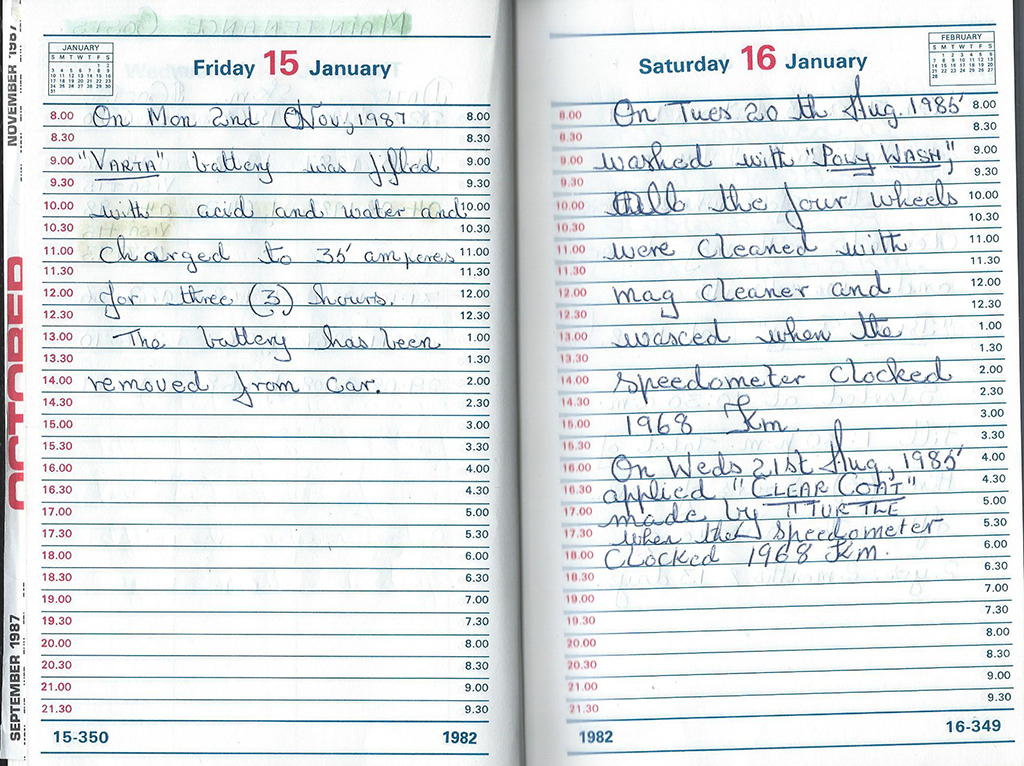 MAINTENANCE COSTS
NOVEMBER 1987
OCTOBER
SEPTEMBER 1987
JANUARY
S M T W T F S
Friday 15 January
8.00 On Mon 2nd Nov, 1987 8.00
8.30
9.00 "VARTA" battery was filled 9.00
9.30 9.30
10.00 with acid and water and 10.00
10.30 10.30
11.00 charged to 35 amperes 11.00
11.30 11.30
12.00 for three (3) hours. 12.00
12.30 12.30
13.00 The battery has been 1.00
13.30 1.30
14.00 removed from car. 2.00
14.30 2.30
15.00 3.00
15.30 3.30
16.00 4.00
16.30 4.30
17.00 5.00
17.30 5.30
18.00 6.00
18.30 6.30
19.00 7.00
19.30 7.30
20.00 8.00
20.30 8.30
21.00 9.00
21.30 9.30
15-350 1982
FEBRUARY
S M T W T F S
Saturday 16 January
8.00 On Tues 20 th Aug. 1985 8.00
8.30 8.30
9.00 washed with "POLY WASH", 9.00
9.30 9.30
10.00 all the four wheels 10.00
10.30 10.30
11.00 were cleaned with 11.00
11.30 11.30
12.00 mag cleaner and 12.00
12.30 12.30
13.00 wasced when the 1.00
13.30 1.30
14.00 speedometer clocked 2.00
14.30 2.30
15.00 1968 Km. 3.00
15.30 3.30
16.00 On Weds 21st Aug, 1985 4.00
16.30 applied "CLEAR COAT" 4.30
17.00 made by TURTLE 5.00
17.30 when the speedometer 5.30
18.00 clocked 1968 Km. 6.00
18.30 6.30
19.00 7.00
19.30 7.30
20.00 8.00
20.30 8.30
21.00 9.00
21.30 9.30
1982 16-349